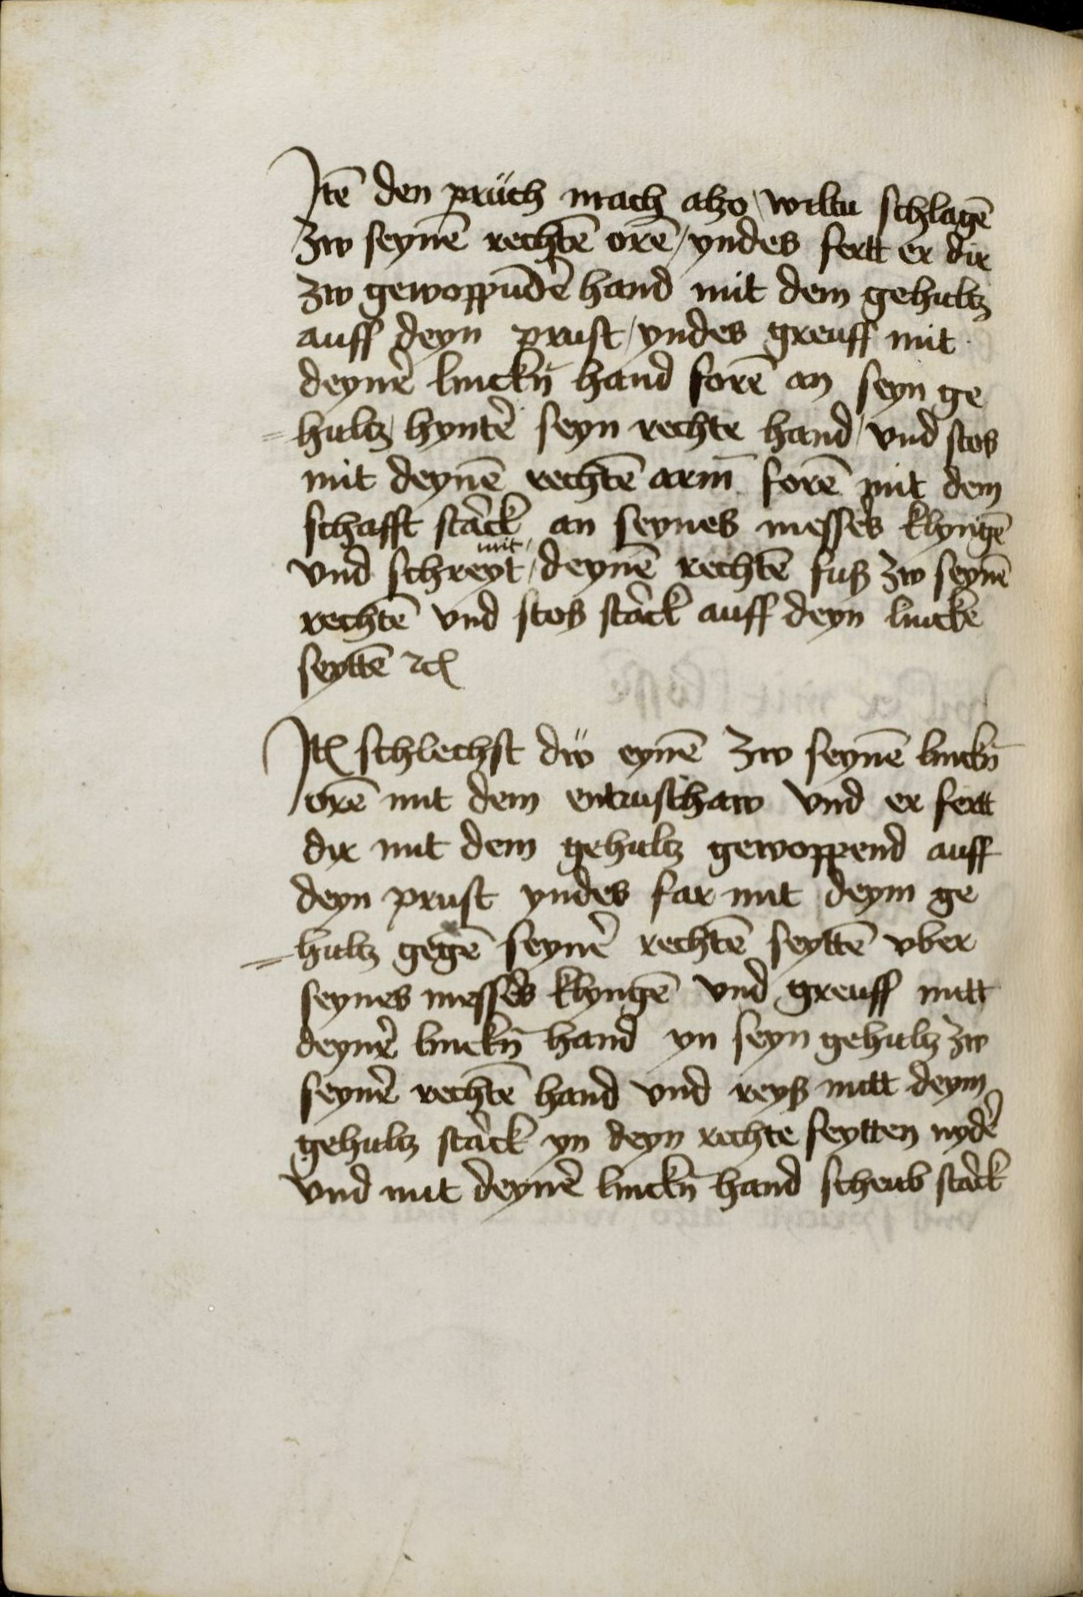 Jtē den prüch mach alzo / wiltu schlagē
zw seynē rechtē orē / yndes fertt er dir
zw gewoppūdē hand mit dem gehultz
auff deyn prust / yndes greuff mit
deynr̄ linckn̄ hand forē an seyn ge
= hultz / hyntē seyn rechte hand / vnd stos
mit deynē rechtē arm̄ forē mit dem
schafft starck an seynes messers klyngē
vnd schreyt / mit deynē rechtē fuß zw seynē
rechtē vnd stoß starck auff deyn lincke
seyttē ꝛcꝭ
Jtꝭ schlechst dw̎ eynē zw seynē linckn̄
orē mit dem entrusthaw vnd er fertt
dir mit dem gehultz gewoppend auff
deyn prust yndes far mit deym ge
= hultz gegē seynr̄ rechtē seyttē vber
seynes messers klyngē vnd greuff mitt
deynr̄ linckn̄ hand yn seyn gehultz zw
seynr̄ rechtē hand vnd reyß mitt deym
gehultz starck yn deyn rechte seytten nydē
vnd mit deynr̄ linckn̄ hand scheub starck